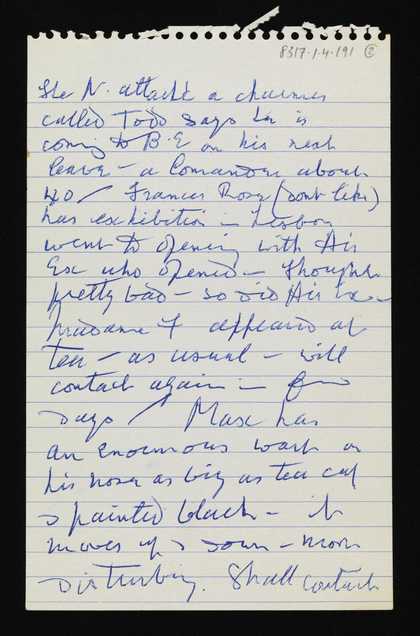 8317.1.4.191
The N. attaché a charmer
called Todd says he is
coming to B.E on his next
leave – a Comander about
40 / Francis Rose (dont like)
has exhibition in Lisbon
went to opening with His
Ex who opened – thought
pretty bad – so did His Ex –
Madame F appeared at
tea – as usual – will
contact again in few
days / Max has
an enormous wart on
his nose as big as tea cup
& painted black – it
moves up & down – most
disturbing. Shall contact